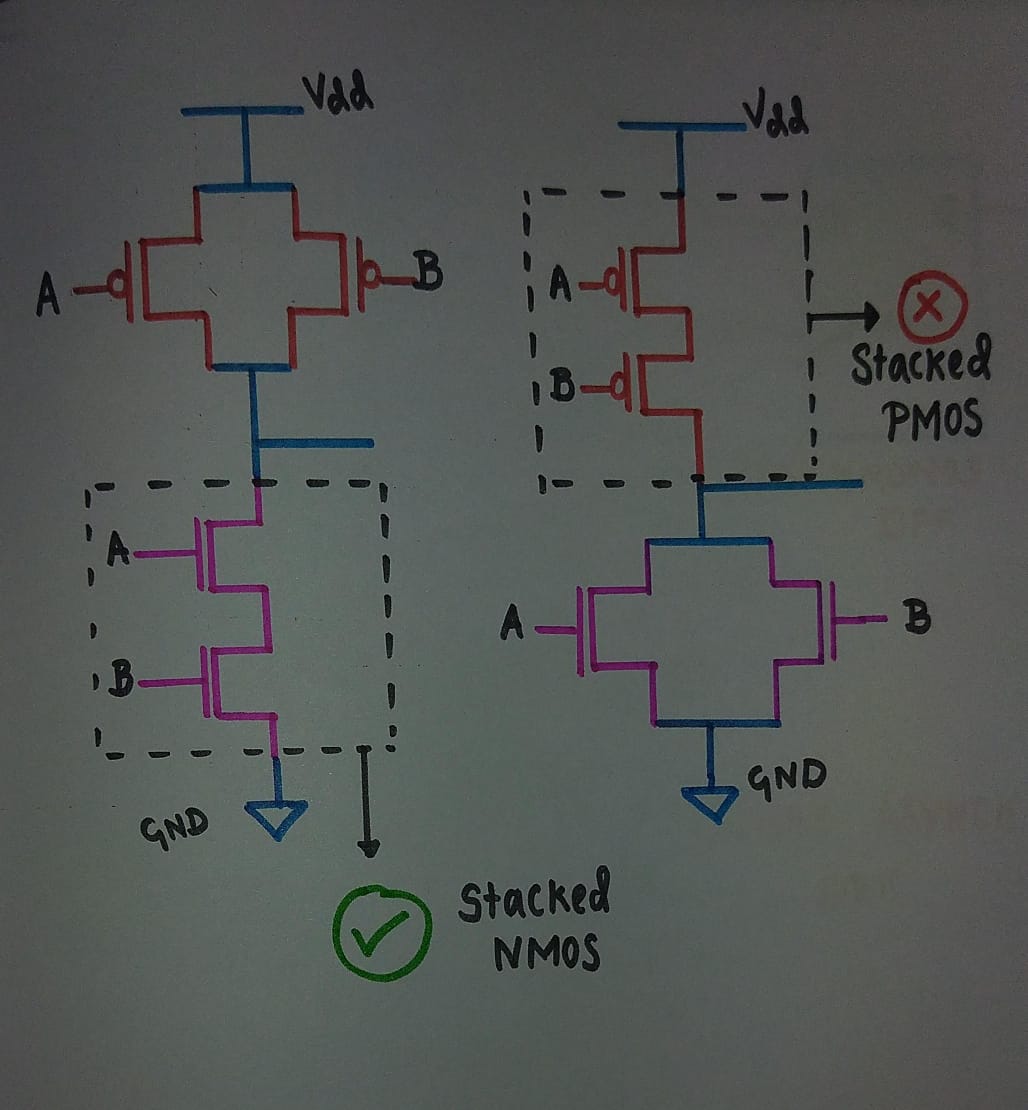 Vdd
A
B
A
B
GND
Stacked
NMOS
Vdd
A
B
Stacked
PMOS
A
B
GND